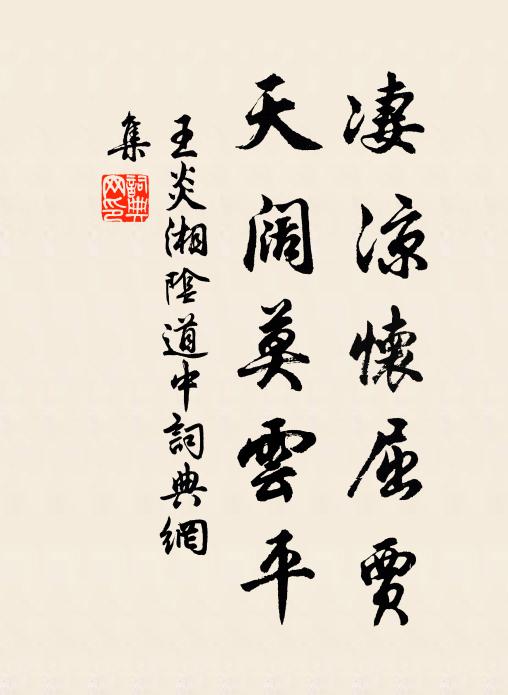 凄涼懷屈賈
天闊莫雲平
王炎湘陰道中詞典網
集
詞典網印